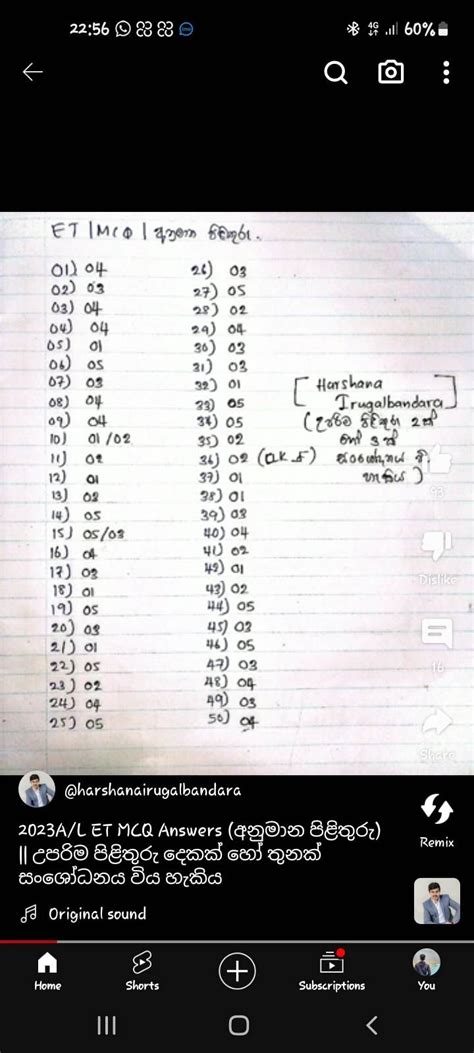 22:56
4G
60%
ET | MCQ | අනුමාන පිළිතුරු.
01) 04
02) 03
03) 04
04) 04
05) 01
06) 05
07) 03
08) 04
09) 04
10) 01/02
11) 02
12) 01
13) 02
14) 05
15) 05/03
16) 04
17) 03
18) 01
19) 05
20) 03
21) 01
22) 05
23) 02
24) 04
25) 05
26) 03
27) 05
28) 02
29) 04
30) 03
31) 03
32) 01
33) 05
34) 05
35) 02
36) 02
37) 01
38) 01
39) 03
40) 04
41) 02
42) 01
43) 02
44) 05
45) 03
46) 05
47) 03
48) 04
49) 03
50) 04
[Harshana
Irugalbandara]
(උපරිම පිළිතුරු 2ක්
හෝ 3ක්
සංශෝධනය වි
හැකිය)
93
Dislike
16
Share
@harshanairugalbandara
2023A/L ET MCQ Answers (අනුමාන පිළිතුරු)
|| උපරිම පිළිතුරු දෙකක් හෝ තුනක්
සංශෝධනය විය හැකිය
Remix
Original sound
Home
Shorts
Subscriptions
You